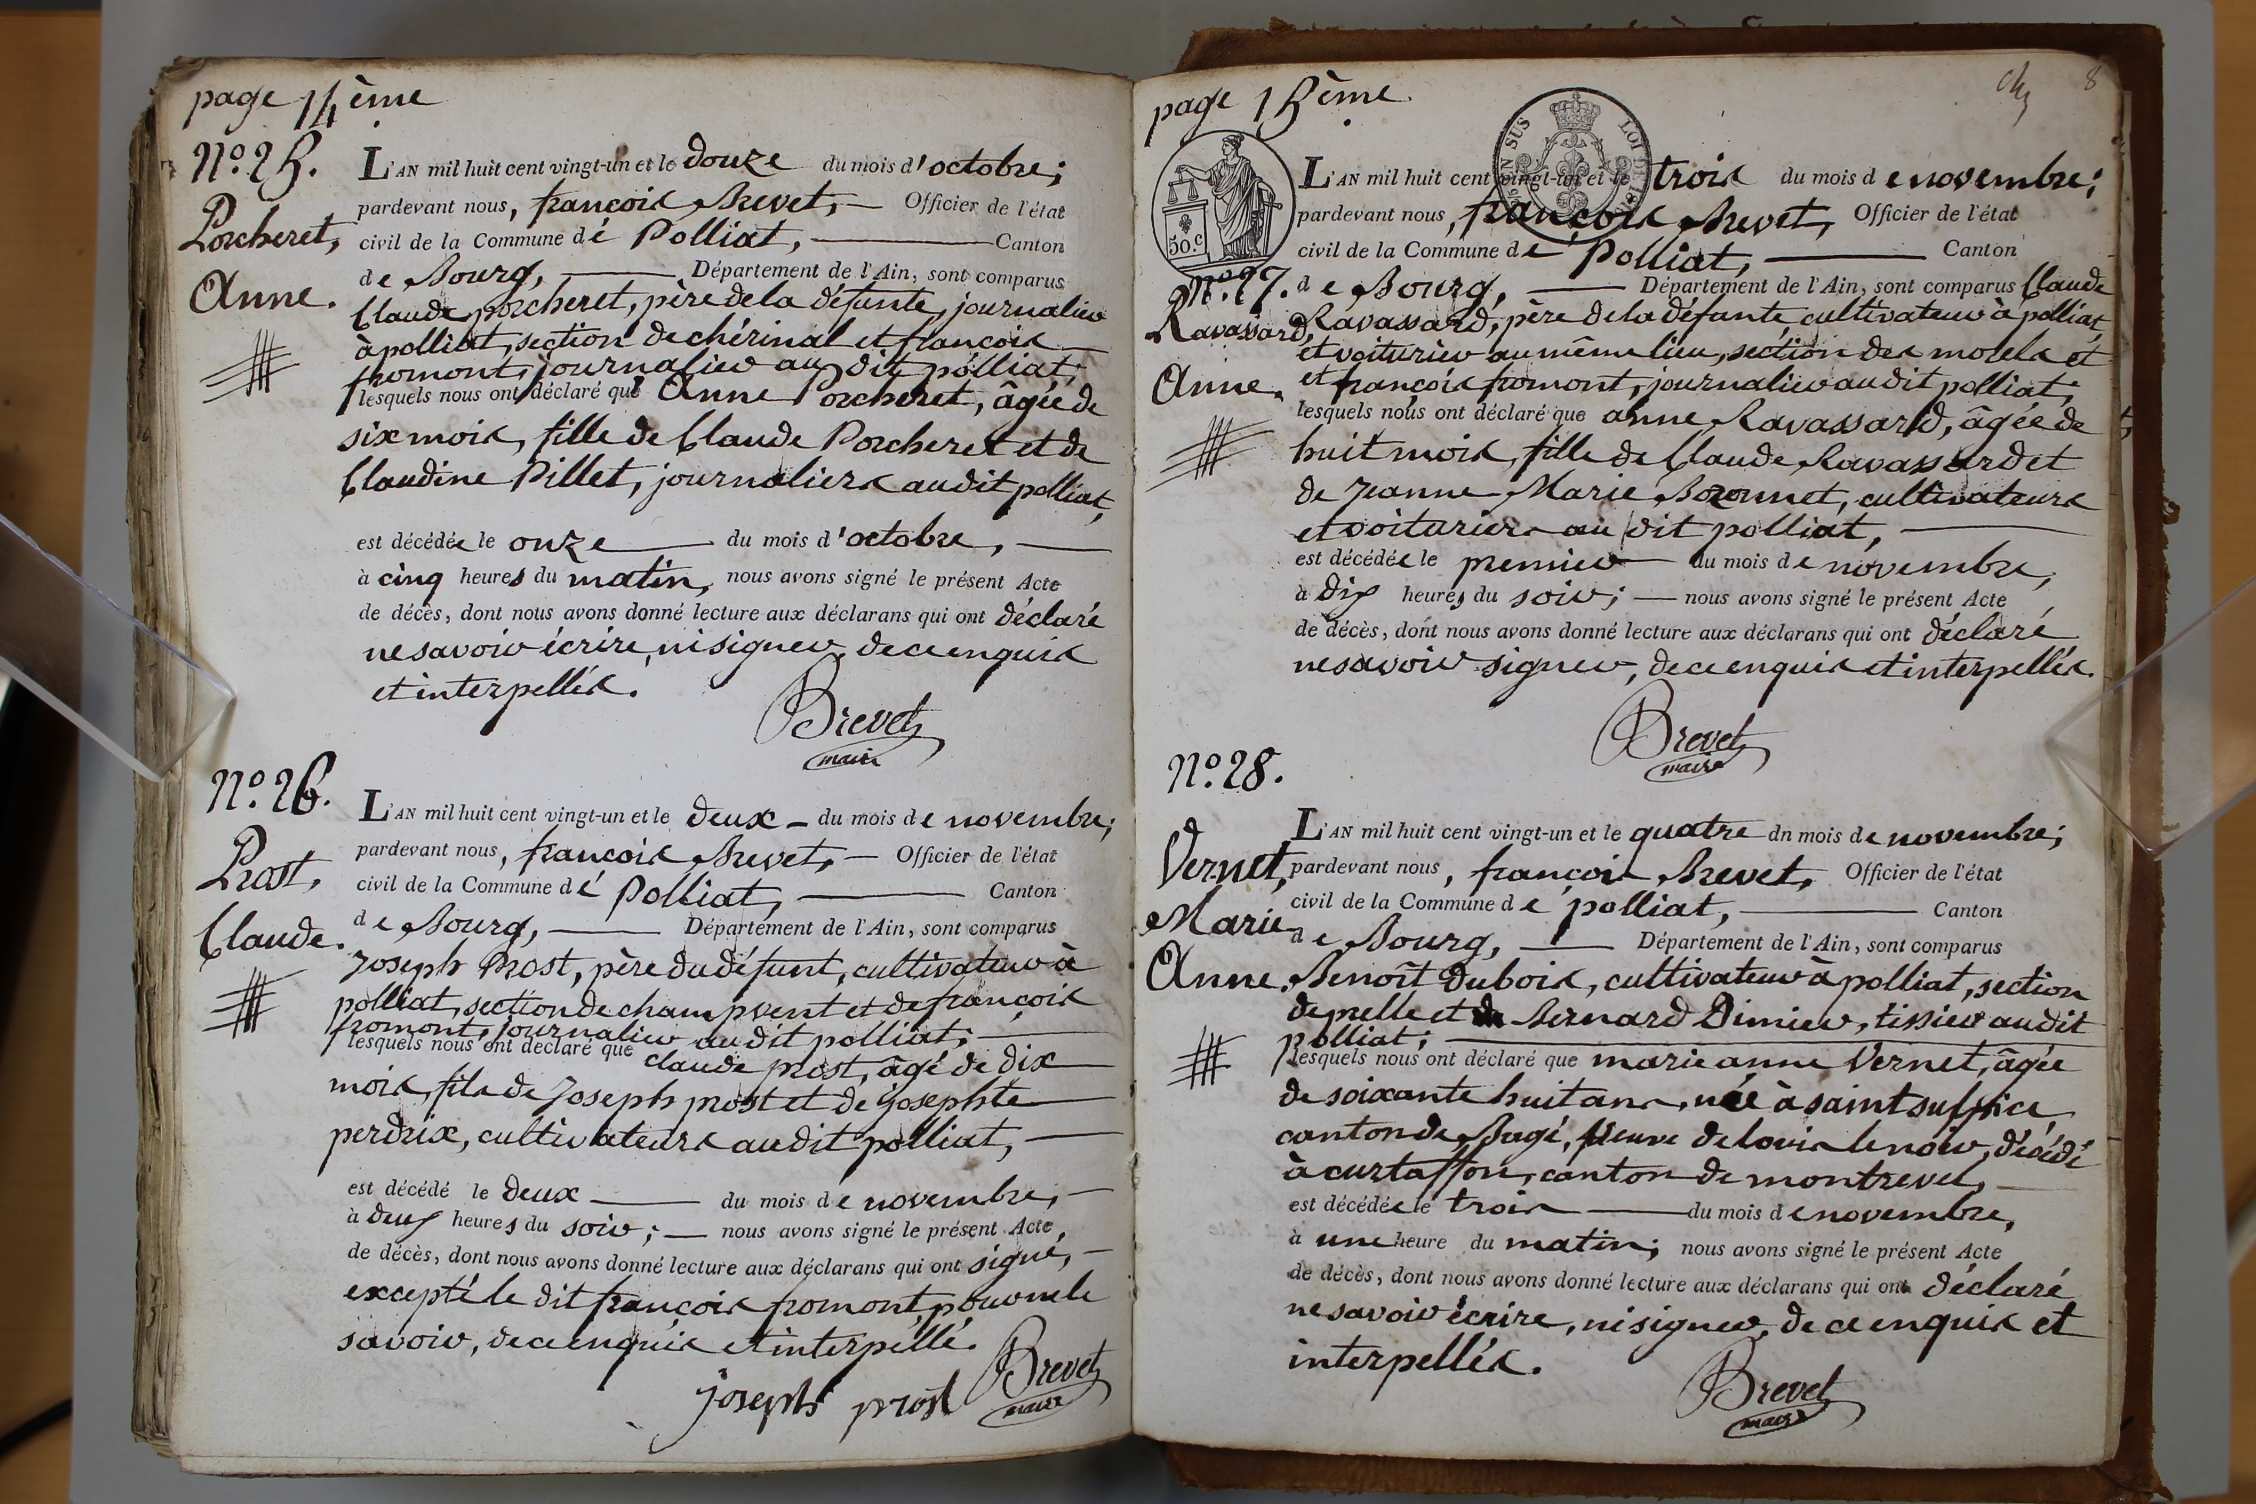 page 14ème
N.o 25.
Porcheret,
Anne.
L'AN mil huit cent vingt-un et le douze du mois d'octobre;
pardevant nous, françois Brevet, Officier de l'état
civil de la Commune de Polliat, Canton
de Bourg, Département de l'Ain, sont comparus
Claude porcheret, père de la défunte, journalier
à polliat, section de chérinal et françois
fromont, journalier au dit polliat;
lesquels nous ont déclaré que Anne Porcheret, âgée de
six mois, fille de Claude Porcheret et de
Claudine Pillet, journaliers audit polliat,
est décédée le onze du mois d'octobre,
à cinq heures du matin, nous avons signé le présent Acte
de décès, dont nous avons donné lecture aux déclarans qui ont déclaré
ne savoir écrire, ni signer, de ce enquis
et interpellés.
Brevet
maire
N.o 26.
Prost,
Claude.
L'AN mil huit cent vingt-un et le deux du mois de novembre;
pardevant nous, françois Brevet, Officier de l'état
civil de la Commune de Polliat, Canton
de Bourg, Département de l'Ain, sont comparus
Joseph Prost, père du défunt, cultivateur à
polliat, section de champvent et de françois
fromont, journalier audit polliat;
lesquels nous ont déclaré que claude prost, âgé de dix
mois, fils de Joseph prost et de josephte
perdrix, cultivateurs audit polliat,
est décédé le deux du mois de novembre,
à deux heures du soir; nous avons signé le présent Acte
de décès, dont nous avons donné lecture aux déclarans qui ont signé,
excepté le dit françois fromont, pour ne le
savoir, de ce enquis et interpellé.
joseph prost Brevet
maire
page 15ème
8
50.c
LOI DE
N.o 27.
Ravassard,
Anne.
L'AN mil huit cent vingt-un et le trois du mois de novembre;
pardevant nous, françois Brevet, Officier de l'état
civil de la Commune de Polliat, Canton
de Bourg, Département de l'Ain, sont comparus Claude
Ravassard, père de la défunte, cultivateur à polliat,
et voiturier au même lieu, section des morels et
et françois fromont, journalier audit polliat;
lesquels nous ont déclaré que anne Ravassard, âgée de
huit mois, fille de Claude Ravassard et
de Jeanne Marie Bozonnet, cultivateurs
et voituriers au dit polliat,
est décédée le premier du mois de novembre,
à dix heures du soir; nous avons signé le présent Acte
de décès, dont nous avons donné lecture aux déclarans qui ont déclaré
ne savoir signer, de ce enquis et interpellés.
Brevet
maire
N.o 28.
Vernet,
Marie
Anne.
L'AN mil huit cent vingt-un et le quatre dn mois de novembre;
pardevant nous, françois Brevet, Officier de l'état
civil de la Commune de polliat, Canton
de Bourg, Département de l'Ain, sont comparus
Benoît Dubois, cultivateur à polliat, section
de presle et de Bernard Dimier, tissier audit
polliat;
lesquels nous ont déclaré que marie anne Vernet, âgée
de soixante huit ans, née à saint sulpice,
canton de Bagé, veuve de louis lenoir, décédé
à curtaffon, canton de montrevel,
est décédée le trois du mois de novembre,
à une heure du matin; nous avons signé le présent Acte
de décès, dont nous avons donné lecture aux déclarans qui ont déclaré
ne savoir écrire, ni signer, de ce enquis et
interpellés.
Brevet
maire